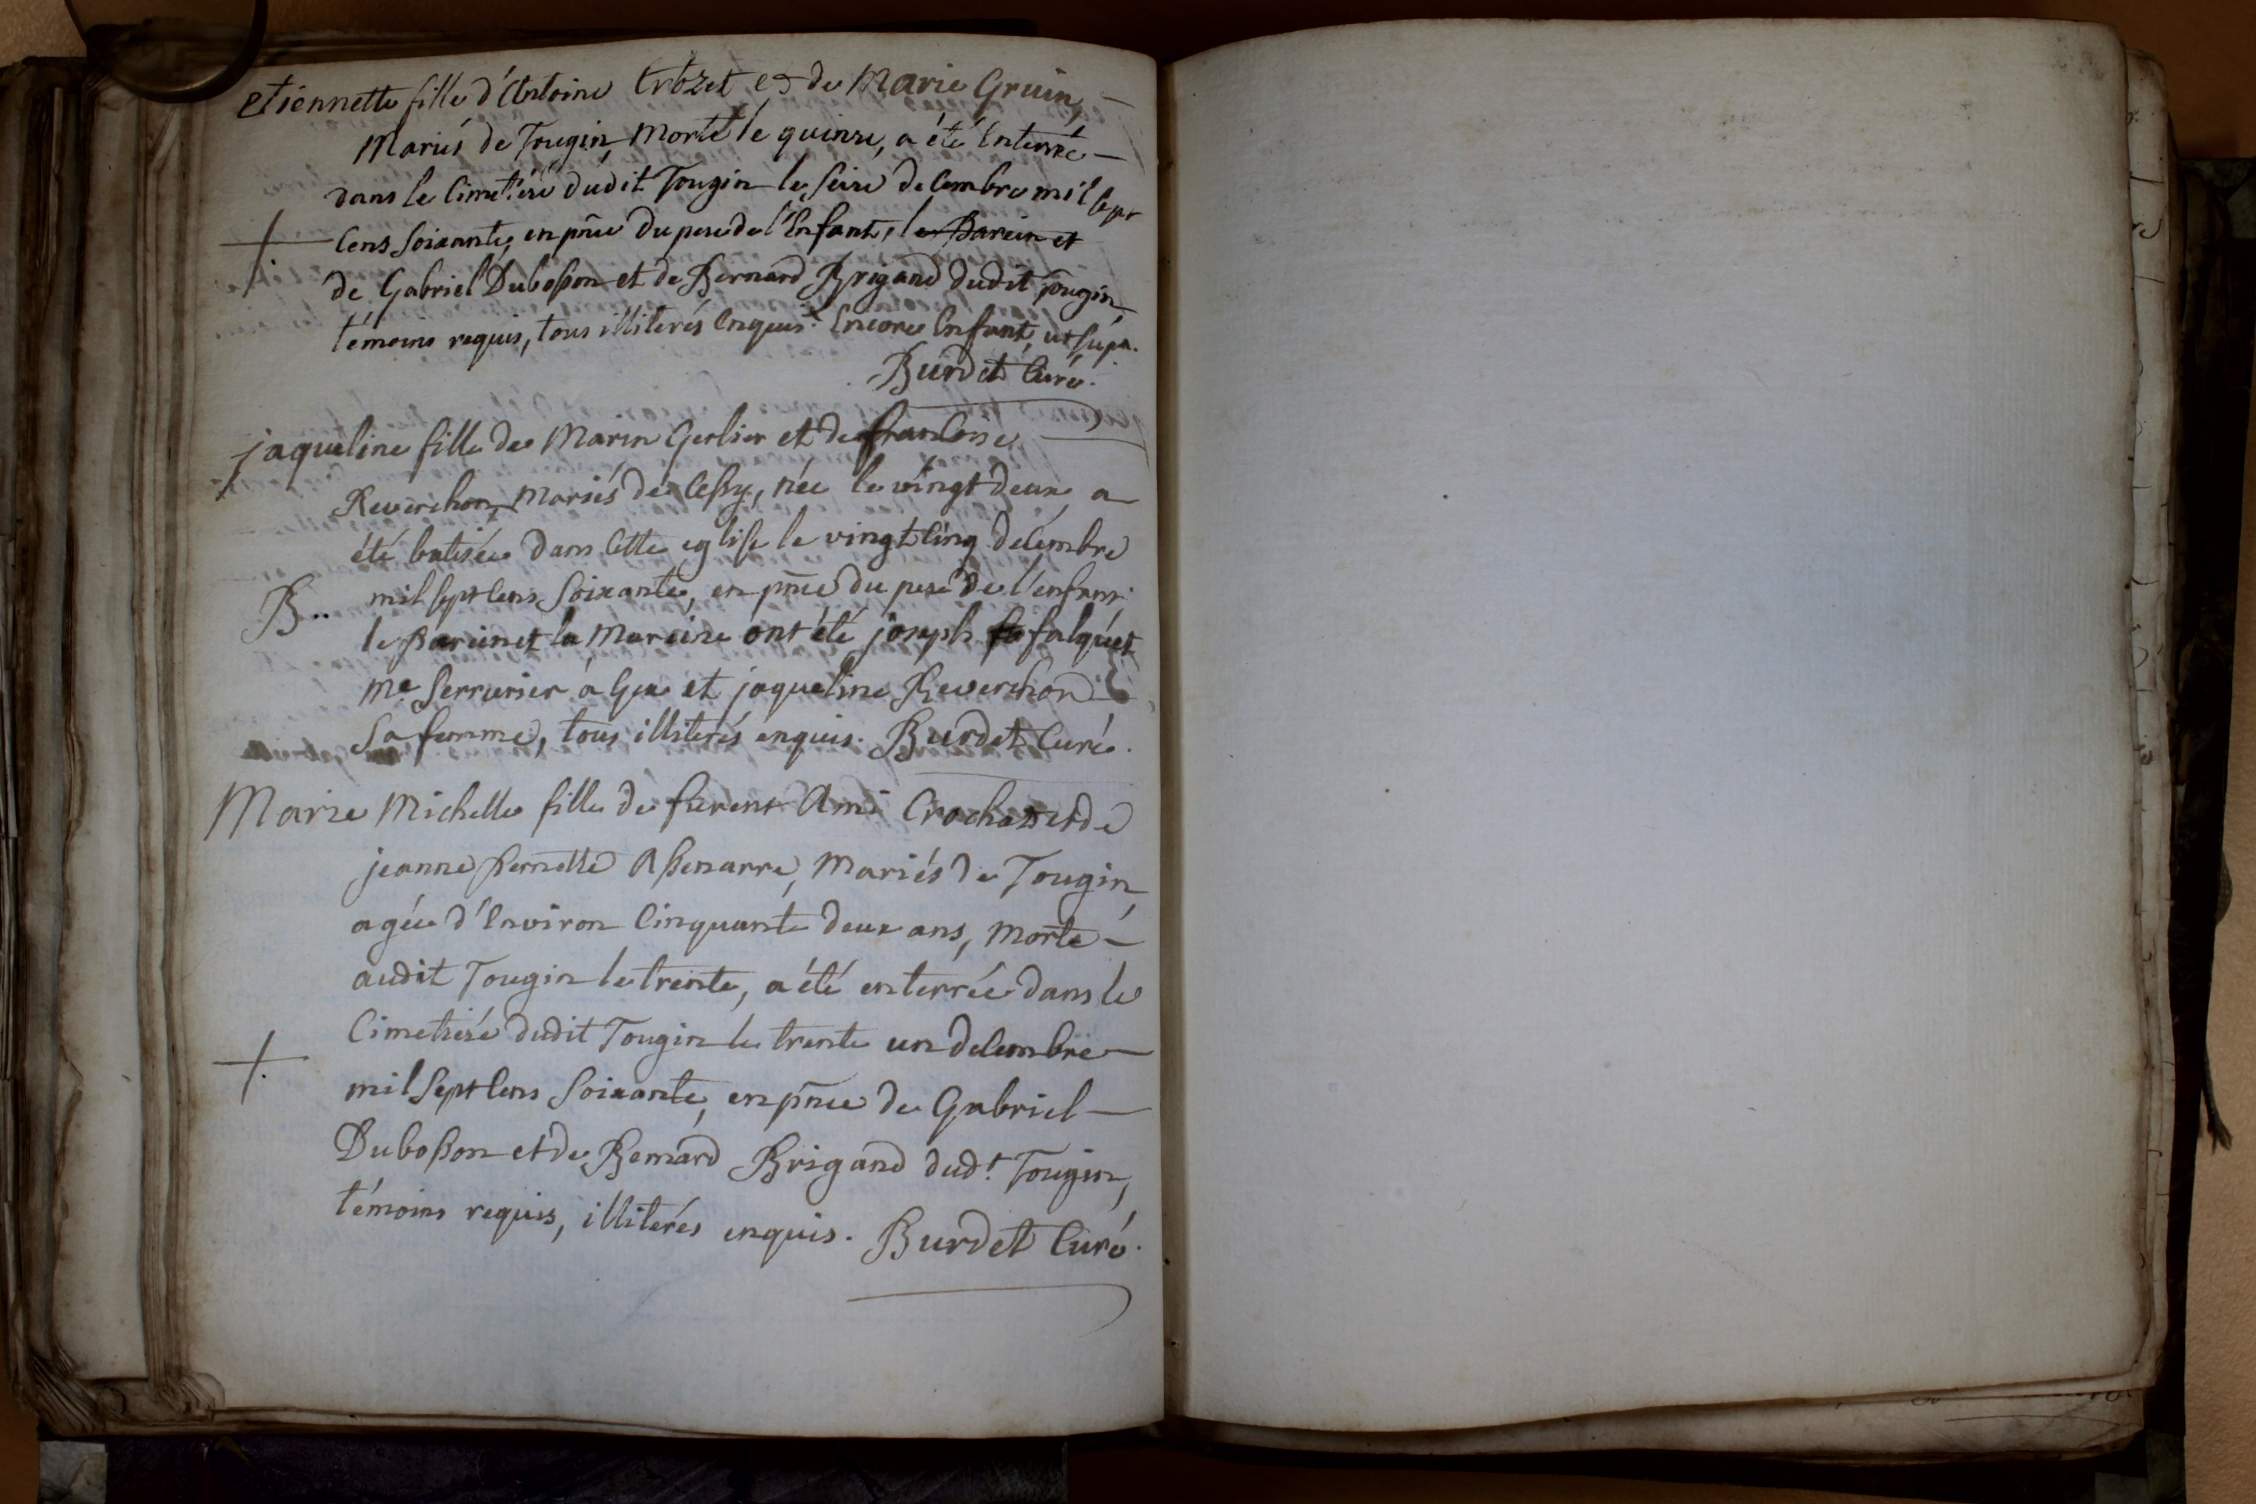 etiennette fille d'Antoine Crozet et de Marie Gruin,
Mariés de Tougin, Morte le quinze, a été Enterrée
dans le Cimetiere dudit Tougin le seize decembre mil sept
Cens Soixante, en pñce du pere de l'Enfant, le Parein et
+ de Gabriel Dubosson et de Bernard Brigand dudit Tougin,
témoins requis, tous illiterés enquis. Encore Enfant, ut supa.
Burdet Curé.
jaqueline fille de Marin Gerlier et de francoise
Reverchon, Mariés de Cessy, née le vingt deux, a
été batisée dans Cette eglise le vingt Cinq decembre
B.. mil sept Cens Soixante, en pñce du pere de l'enfant.
le Parein et la Mareine ont été joseph falquet
me Serrurier à Gex et jaqueline Reverchon
Sa femme, tous illiterés enquis. Burdet Curé.
Marie Michelle fille de furent Ami Crochat et de
jeanne Pernette Apenarre, Mariés de Tougin,
agée d'Environ Cinquante deux ans, Morte
audit Tougin le trente, a été enterrée dans le
Cimetiere dudit Tougin le trente un decembre
+ mil Sept Cens Soixante, en pñce de Gabriel
Dubosson et de Bernard Brigand dudt. Tougin,
témoins requis, illiterés enquis. Burdet Curé.